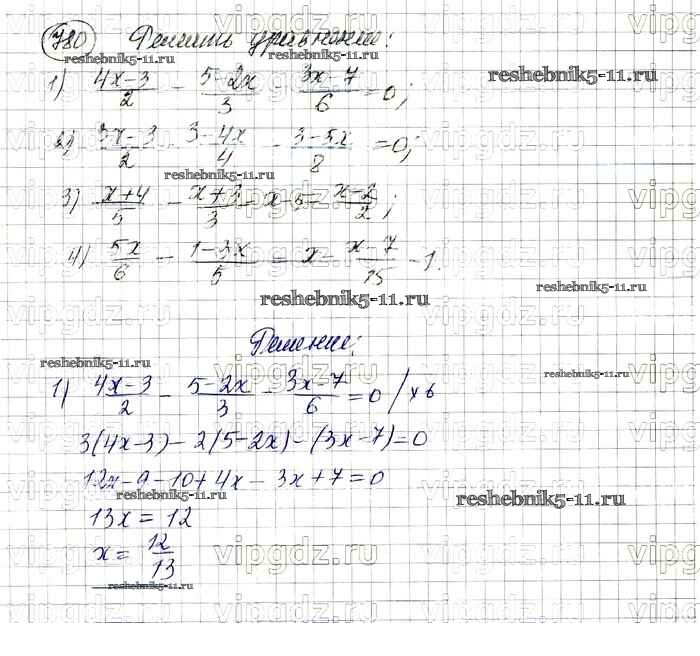 780 Решить уравнение:
reshebnik5-11.ru reshebnik5-11.ru reshebnik5-11.ru
1) (4x-3)/2 - (5-2x)/3 - (3x-7)/6 = 0;
2) (3x-3)/2 - (3-4x)/4 - (3-5x)/8 = 0;
reshebnik5-11.ru
3) (x+4)/5 - (x+3)/3 = x-5 - (x-2)/2;
4) (5x)/6 - (1-3x)/5 = x - (x-7)/15 - 1.
reshebnik5-11.ru
reshebnik5-11.ru
Решение:
reshebnik5-11.ru
1) (4x-3)/2 - (5-2x)/3 - (3x-7)/6 = 0 /×6
reshebnik5-11.ru
3(4x-3)-2(5-2x)-(3x-7)=0
12x-9-10+4x-3x+7=0
reshebnik5-11.ru reshebnik5-11.ru
13x = 12
x = 12/13
reshebnik5-11.ru
vipgdz.ru vipgdz.ru vipgdz.ru